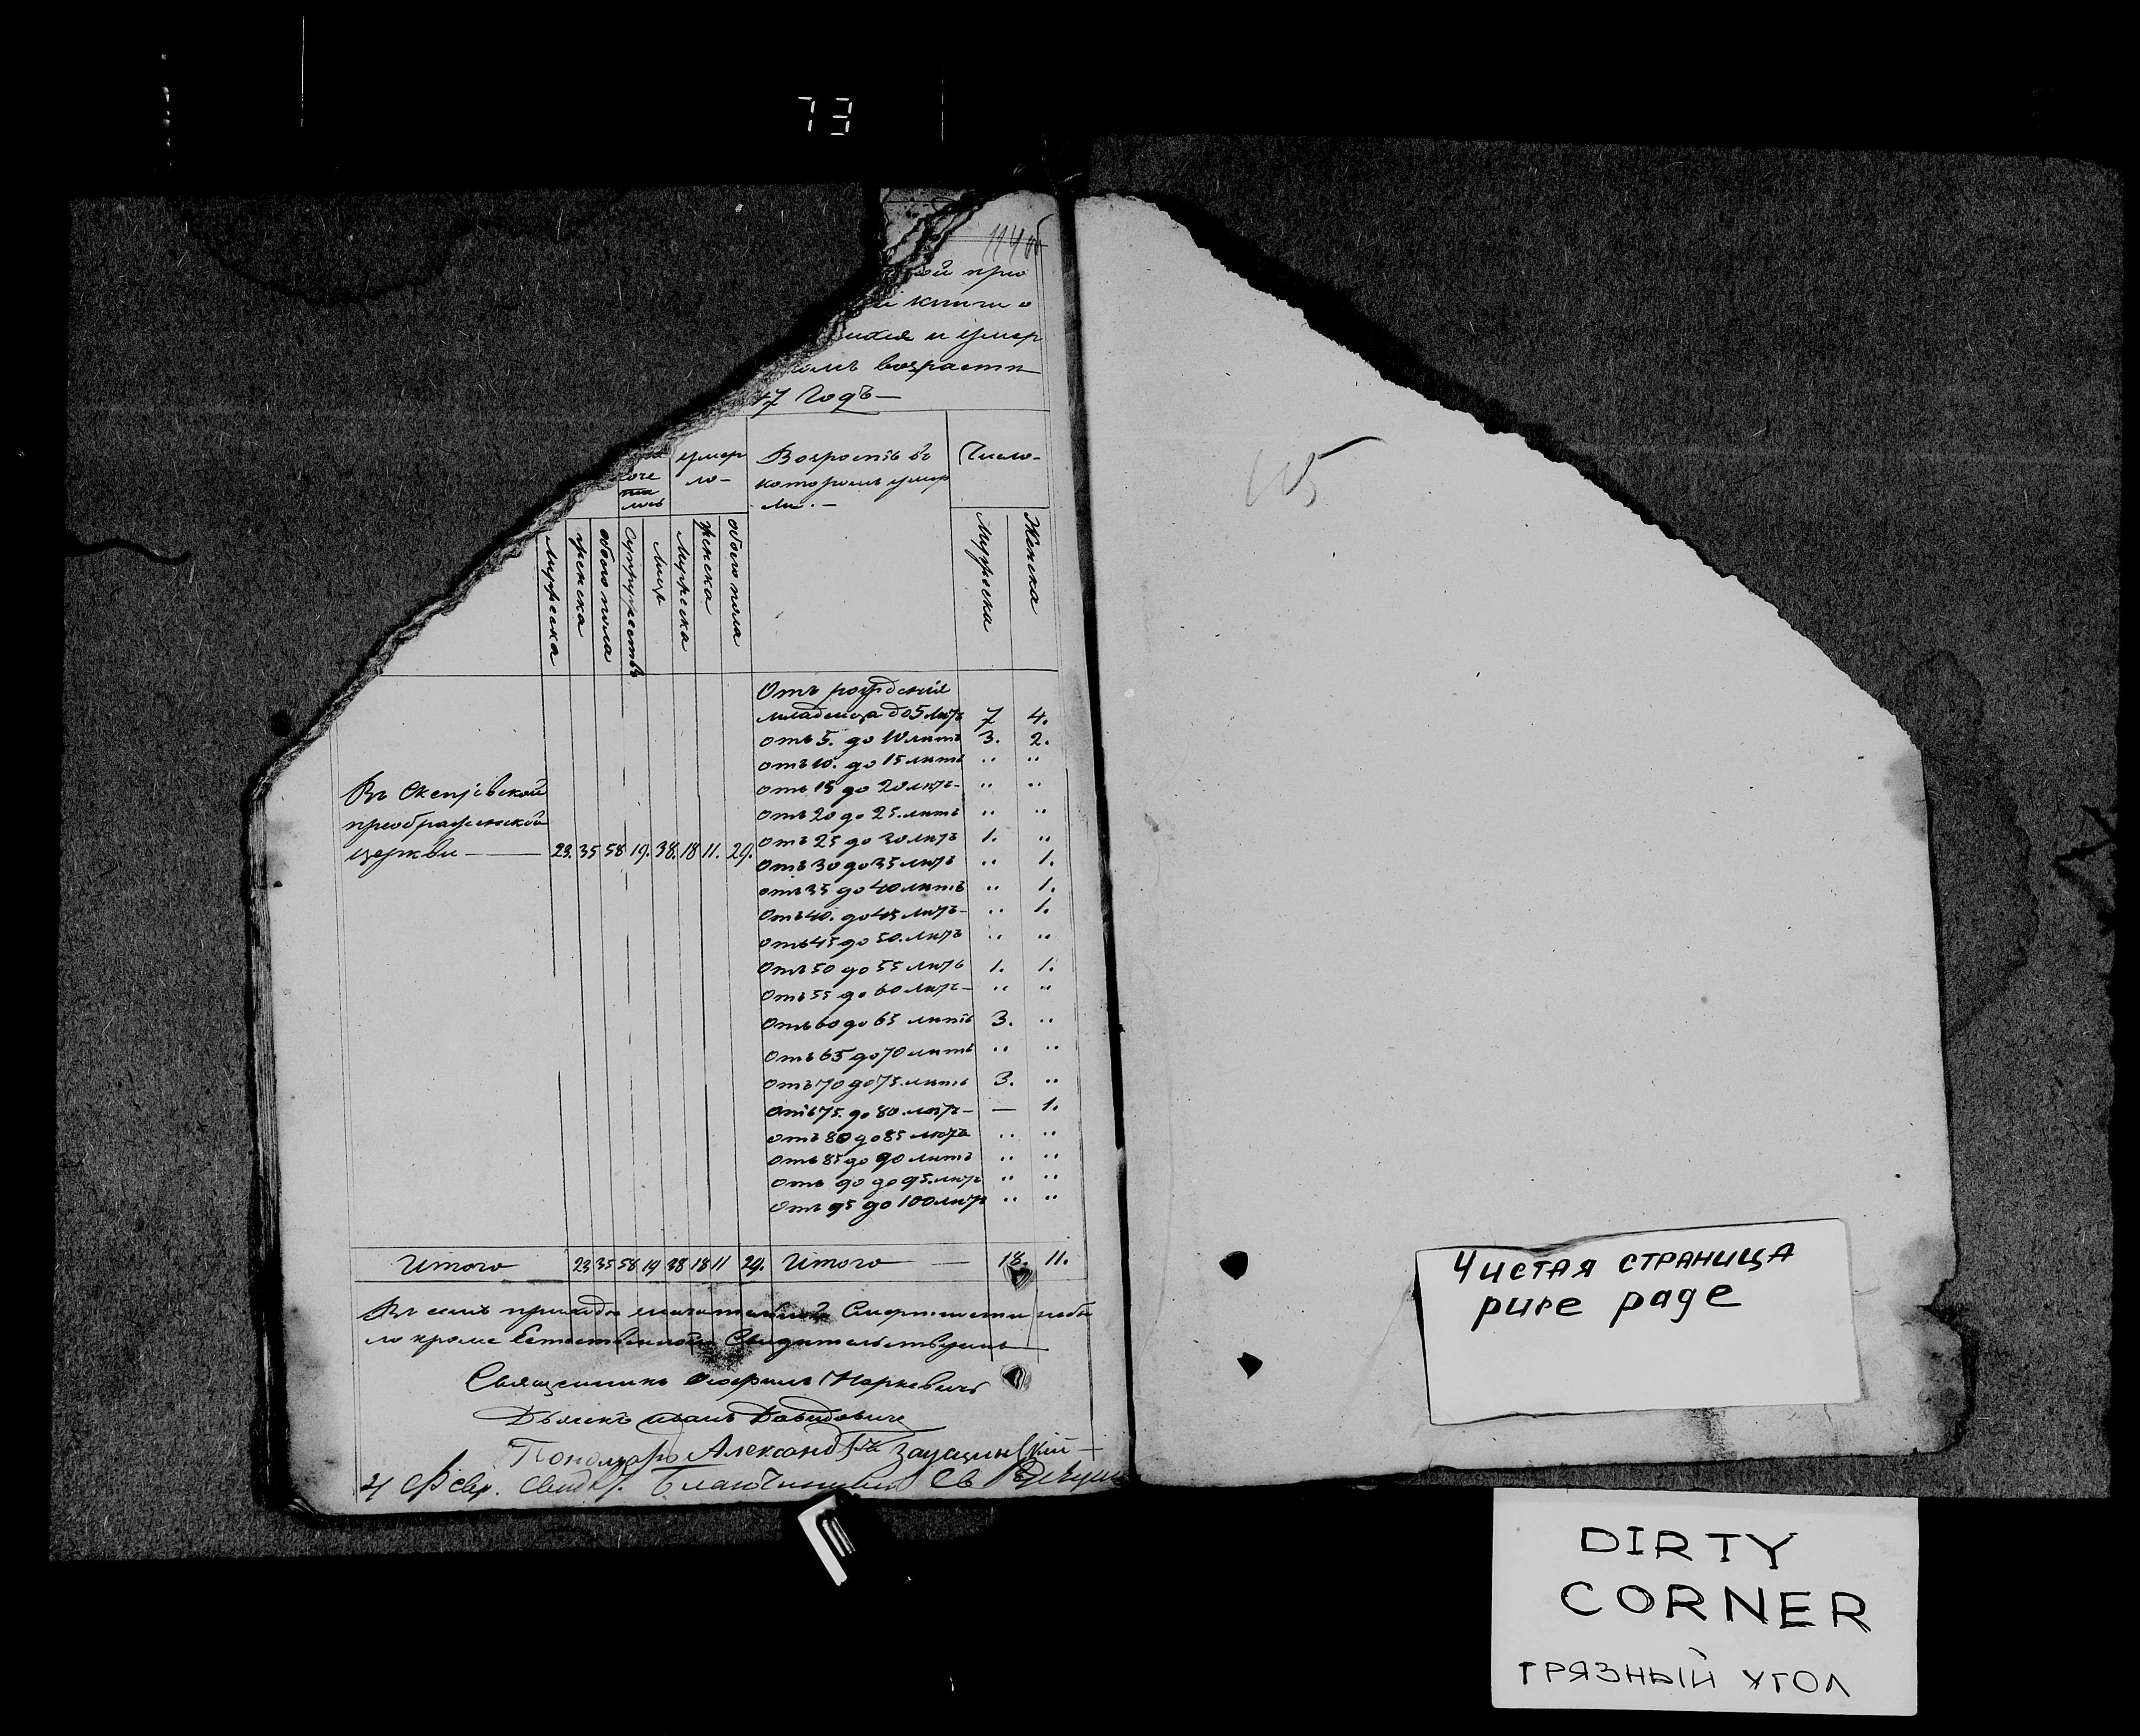 73
114 об
ой при
й книги о
ихся и умер
омъ возрасти
47 Годъ —
соче
та
лось
умер
ло —
Возрастъ въ
которомъ умер
ли. —
Число —
Мужеска
женска
обоего пола
Супружествъ
лицъ
Мужеска
женска
обоего пола
Мужеска
Женска
Отъ рожденія
младенца до 5 лѣтъ 7 4.
отъ 5. до 10 лѣтъ 3. 2.
отъ 10. до 15 лѣтъ " "
отъ 15 до 20 лѣтъ — " "
отъ 20 до 25. лѣтъ " "
отъ 25 до 30 лѣтъ 1. "
отъ 30 до 35 лѣтъ " 1.
отъ 35 до 40 лѣтъ " 1.
отъ 40. до 45 лѣтъ — " 1.
отъ 45 до 50. лѣтъ " "
отъ 50 до 55 лѣтъ 1. 1.
отъ 55 до 60 лѣтъ — " "
отъ 60 до 65 лѣтъ 3. "
отъ 65 до 70 лѣтъ " "
отъ 70 до 75. лѣтъ 3. "
отъ 75. до 80. лѣтъ — — 1.
отъ 80 до 85 лѣтъ " "
отъ 85 до 90 лѣтъ " "
отъ 90 до 95. лѣтъ " "
отъ 95 до 100 лѣтъ " "
Въ
преображенской
церкви — 23. 35 58 19. 38. 18 11. 29.
Итого 23 35 58 19 38 18 11 29. Итого — 18. 11.
Въ семъ приходѣ Смертности небы
ло кроме Естественной Свидѣтельствуемъ
Священникъ Маркевичъ
Дьячекъ Иванъ Давидовичъ
Пономарь Александръ
Февр. Свидѣт. Благочинный Св
115
Чистая страница
pure page
DIRTY
CORNER
ГРЯЗНЫЙ УГОЛ